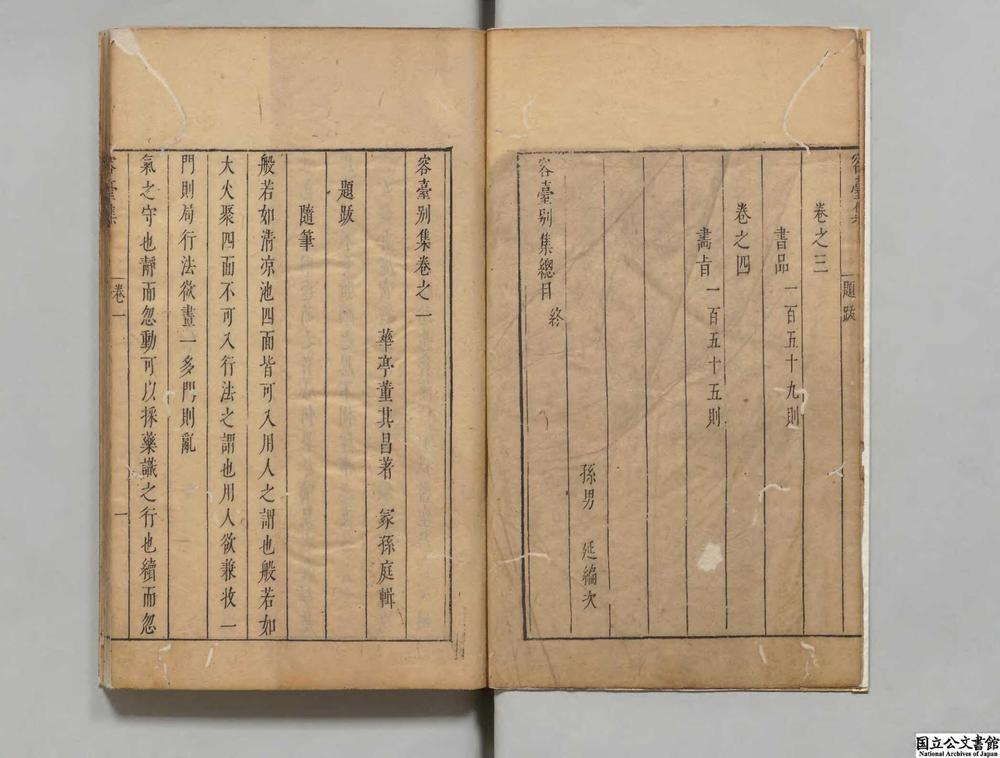 容臺集
題跋
卷之三
書品一百五十九則
卷之四
畵旨一百五十五則
孫男 延編次
容臺別集總目 終
容臺別集卷之一
華亭董其昌著 冢孫庭輯
題跋
隨筆
般若如清凉池四面皆可入用人之謂也般若如
大火聚四面不可入行法之謂也用人欲兼收一
門則局行法欲畫一多門則亂
氣之守也靜而忽動可以採藥識之行也續而忽
容臺集
卷一
一
国立公文書館
National Archives of Japan